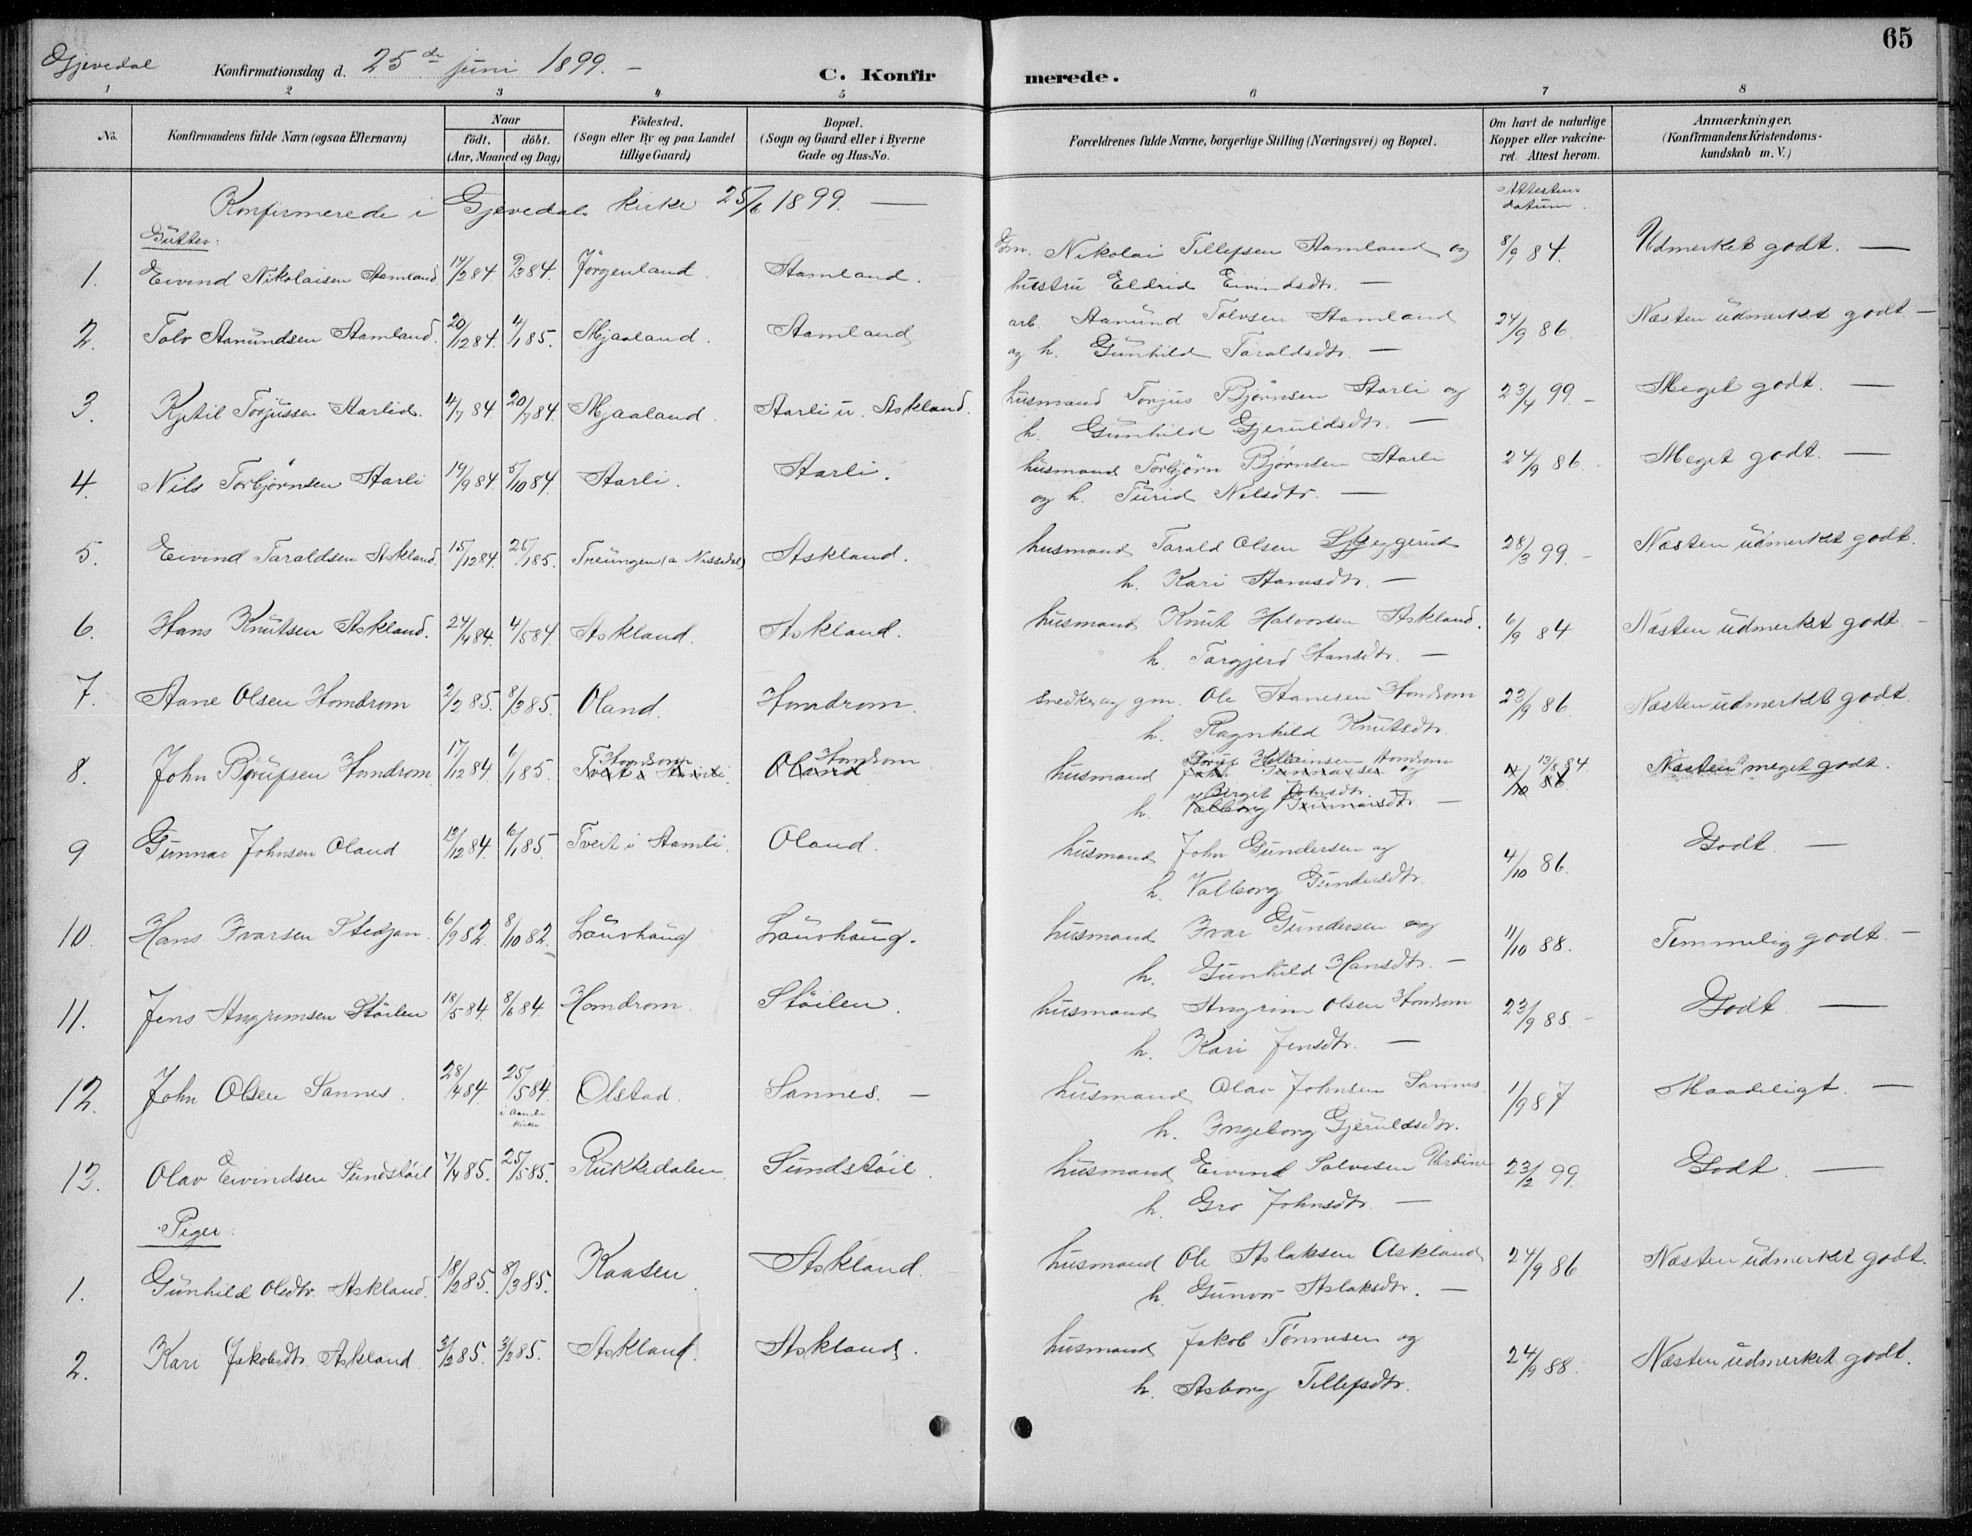 65
Gjevedal Konfirmationsdag d. 25de juni 1899. —
C. Konfirmerede.
1 2 3 4 5 6 7 8
No. Konfirmandens fulde Navn (ogsaa Efternavn) Naar födt. döbt. (Aar, Maaned og Dag) Födested. (Sogn eller By og paa Landet tillige Gaard) Bopæl. (Sogn og Gaard eller i Byerne Gade og Hus-No. Forældrenes fulde Navne, borgerlige Stilling (Næringsvei) og Bopæl. Om havt de naturlige Kopper eller vakcineret. Attest herom. Anmærkninger. (Konfirmandens Kristendomskundskab m. V.)
Konfirmerede i Gjevedals kirke 25/6 1899. — Attestens datum.
Gutter:
1. Eivind Nikolaisen Aamland 14/2 84. 9/3 84. Jörgenland. Aamland. Gm. Nikolai Tellefsen Aamland og 8/9 84. Udmerket godt. —
hustru Eldrid Eivindsdtr. —
2. Tolv Aanundsen Aamland. 20/12 84. 4/1 85. Mjaaland. Aamland arb. Aanund Tolvsen Aamland 24/9 86. Næsten udmerket godt. —
og h. Gunhild Taraldsdtr. —
3. Kjetil Torjussen Aarlid. 4/7 84. 20/7 84. Mjaaland. Aarli u. Askland. husmand Torjus Bjørnsen Aarli og 23/4 99. — Meget godt. —
h. Gunhild Gjeruldsdtr. —
4. Nils Torbjørnsen Aarli 19/9 84. 5/10 84. Aarli. Aarli. husmand Torbjörn Bjørnsen Aarli 24/9 86. Meget godt. —
og h. Turid Nilsdtr. —
5. Eivind Taraldsen Askland. 15/12 84. 25/1 85. Treungen (a Nissedal) Askland. husmand Tarald Olsen 28/3 99. — Næsten udmerket godt.
h. Kari Aanesdtr. —
6. Hans Knutsen Askland. 24/4 84. 4/5 84 Askland. Askland. husmand Knut Halvorsen Askland. 6/9 84 Næsten udmerket godt. —
h. Targjerd Hansdtr. —
7. Aane Olsen Homdrom 2/2 85. 8/3 85. Oland. Homdrom. Snedker og gm. Ole Aanesen Homdrom 23/9 86. Næsten udmerket godt.
h. Ragnhild Knutsdtr.
8. John Bjorufsen Homdrom 17/12 84. 6/1 85. Homdrom Homdrom husmand Homdrom og 13/8 84 Næsten meget godt.
h. Birgit Johnsdtr. —
9 Gunnar Johnsen Oland 12/12 84. 6/1 85. Tveit i Aamli. Oland. husmand John Gundersen og 4/10 86. Godt. —
h. Valborg Gundersdtr.
10. Hans Ivarsen Stedjan. 6/9 82. 8/10 82. Lauvhaug Lauvhaug. husmand Ivar Gundersen og 11/10 88. Temmelig godt. —
h. Gunhild Hansdtr. —
11. Jens Angrimsen Støilen 18/5 84. 8/6 84. Homdrom. Støilen. husmand Angrim Olsen Homdrom 23/9 88. — Godt. —
h. Kari Jensdtr. —
12. John Olsen Sannes. 28/4 84. 25/5 84. i Aamli kirke. Olstad. Sannes. — husmand Olav Johnsen Sannes. 1/9 87 Maadeligt. —
h. Ingeborg Gjeruldsdtr.
13. Olav Eivindsen Sundstøil 7/4 85. 25/5 85. Rukkedalen Sundstøil. husmand Eivind Salvesen 23/2 99. Godt. —
h. Gro Johnsdtr. —
Piger:
1. Gunhild Olsdtr. Askland. 18/2 85. 8/3 85. Kaasen Askland. husmand Ole Aslaksen Askland 24/9 86 Næsten udmerket godt.
h. Gunvor Aslaksdtr. —
2. Kari Jakobsdtr. Askland. 3/2 85. 3/2 85. Askland. Askland. husmand Jakob Tönnesen og 24/9 88. Næsten udmerket godt.
h. Asborg Tellefsdtr.